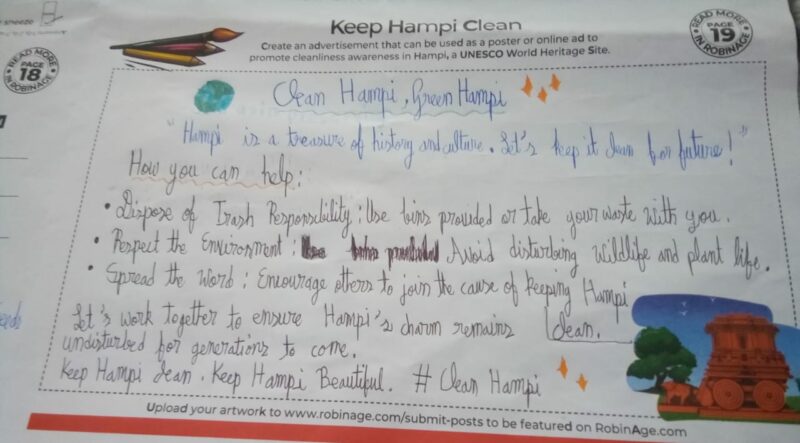 Keep Hampi Clean
Create an advertisement that can be used as a poster or online ad to
promote cleanliness awareness in Hampi, a UNESCO World Heritage Site.
READ MORE
PAGE
18
IN ROBINAGE
READ MORE
PAGE
19
IN ROBINAGE
Clean Hampi, Green Hampi
"Hampi is a treasure of history and culture. Let's keep it clean for future!"
How you can help:
• Dispose of Trash Responsibility: Use bins provided or take your waste with you.
• Respect the Environment: Avoid disturbing wildlife and plant life.
• Spread the Word: Encourage others to join the cause of keeping Hampi
clean.
Let's work together to ensure Hampi's charm remains
undisturbed for generations to come.
Keep Hampi clean. Keep Hampi Beautiful. # Clean Hampi
Upload your artwork to www.robinage.com/submit-posts to be featured on RobinAge.com